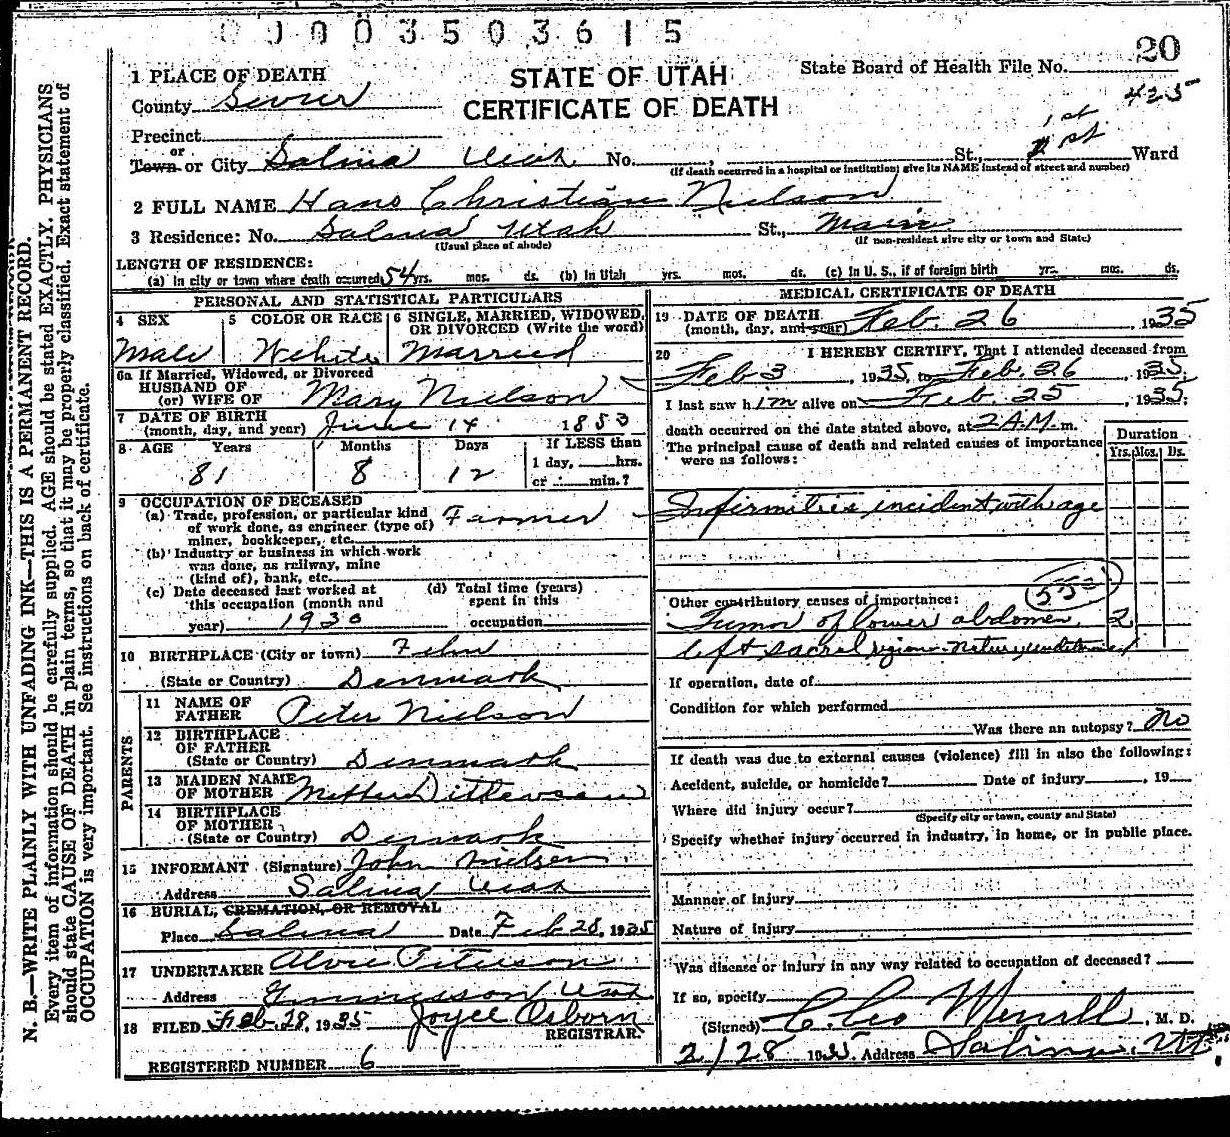 0 0 0 0 3 5 0 3 6 1 5
20
STATE OF UTAH
CERTIFICATE OF DEATH
State Board of Health File No.
425
1 PLACE OF DEATH
County Sevier
Precinct
or
Town or City Salina Utah No. , St., 1st 1 st Ward
(If death occurred in a hospital or institution, give its NAME instead of street and number)
2 FULL NAME Hans Christian Nielson
3 Residence: No. Salina Utah St., Main
(Usual place of abode) (If non-resident give city or town and State)
LENGTH OF RESIDENCE:
(a) In city or town where death occurred 54 yrs. mos. ds. (b) In Utah yrs. mos. ds. (c) In U. S., if of foreign birth yrs. mos. ds.
PERSONAL AND STATISTICAL PARTICULARS
4 SEX Male
5 COLOR OR RACE White
6 SINGLE, MARRIED, WIDOWED, OR DIVORCED (Write the word) Married
6a If Married, Widowed, or Divorced
HUSBAND OF
(or) WIFE OF Mary Nielson
7 DATE OF BIRTH
(month, day, and year) June 14 1853
8 AGE Years Months Days If LESS than
81 8 12 1 day, hrs.
or min.?
9 OCCUPATION OF DECEASED
(a) Trade, profession, or particular kind
of work done, as engineer (type of) Farmer
miner, bookkeeper, etc.
(b) Industry or business in which work
was done, as railway, mine
(kind of), bank, etc.
(c) Date deceased last worked at
this occupation (month and
year) 1930
(d) Total time (years)
spent in this
occupation
10 BIRTHPLACE (City or town)
(State or Country) Denmark
PARENTS
11 NAME OF
FATHER Peter Nielson
12 BIRTHPLACE
OF FATHER
(State or Country) Denmark
13 MAIDEN NAME
OF MOTHER
14 BIRTHPLACE
OF MOTHER
(State or Country) Denmark
15 INFORMANT (Signature) John Nielsen
Address Salina Utah
16 BURIAL, CREMATION, OR REMOVAL
Place Salina Date Feb 28, 1935
17 UNDERTAKER
Address Utah
18 FILED Feb. 28, 1935 Joyce Osborn
REGISTRAR.
REGISTERED NUMBER 6
MEDICAL CERTIFICATE OF DEATH
19 DATE OF DEATH
(month, day, and year) Feb. 26, 1935
20 I HEREBY CERTIFY, That I attended deceased from
Feb 3, 1935, to Feb. 26, 1935;
I last saw him alive on Feb. 25, 1935;
death occurred on the date stated above, at 2 A.M. m.
The principal cause of death and related causes of importance
were as follows:
Duration
Yrs. Mos. Ds.
Infirmities incident with age
Other contributory causes of importance:
Tumor of lower abdomen, 2
left sacral region - Nature undetermined
If operation, date of
Condition for which performed
Was there an autopsy? no
If death was due to external causes (violence) fill in also the following:
Accident, suicide, or homicide? Date of injury , 19
Where did injury occur?
(Specify city or town, county and State)
Specify whether injury occurred in industry, in home, or in public place.
Manner of injury
Nature of injury
Was disease or injury in any way related to occupation of deceased?
If so, specify
(Signed) C. Leo Merrill, M. D.
2/28 1935 Address Salina, Ut.
N. B.—WRITE PLAINLY WITH UNFADING INK—THIS IS A PERMANENT RECORD.
Every item of information should be carefully supplied. AGE should be stated EXACTLY. PHYSICIANS
should state CAUSE OF DEATH in plain terms, so that it may be properly classified. Exact statement of
OCCUPATION is very important. See instructions on back of certificate.